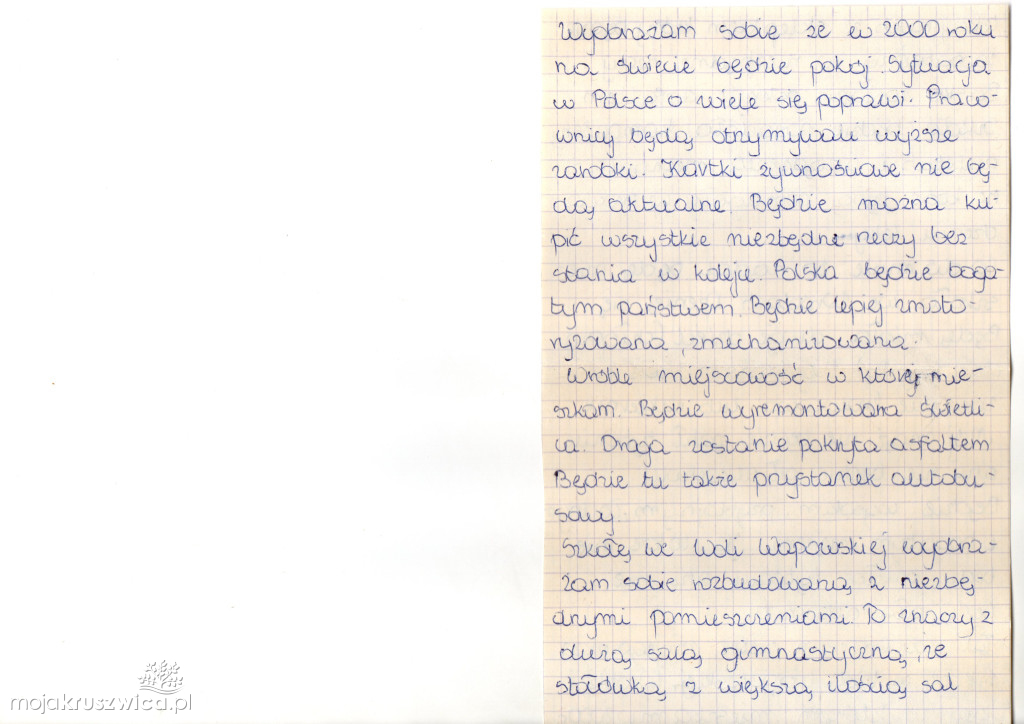 Wyobrażam sobie że w 2000 roku
na świecie będzie pokój. Sytuacja
w Polsce o wiele się poprawi. Praco-
wnicy będą otrzymywali wyższe
zarobki. Kartki żywnościowe nie bę-
dą aktualne. Będzie można ku-
pić wszystkie niezbędne rzeczy bez
stania w kolejce. Polska będzie boga-
tym państwem. Będzie lepiej zmoto-
ryzowana, zmechanizowana.
Wróble miejscowość w której mie-
szkam. Będzie wyremontowana świetli-
ca. Droga zostanie pokryta asfaltem
Będzie tu także przystanek autobu-
sowy.
Szkołę we Woli Wapowskiej wyobra-
żam sobie rozbudowaną z niezbę-
dnymi pomieszczeniami. To znaczy z
dużą salą gimnastyczną, ze
stołówką z większą ilością sal
mojakruszwica.pl